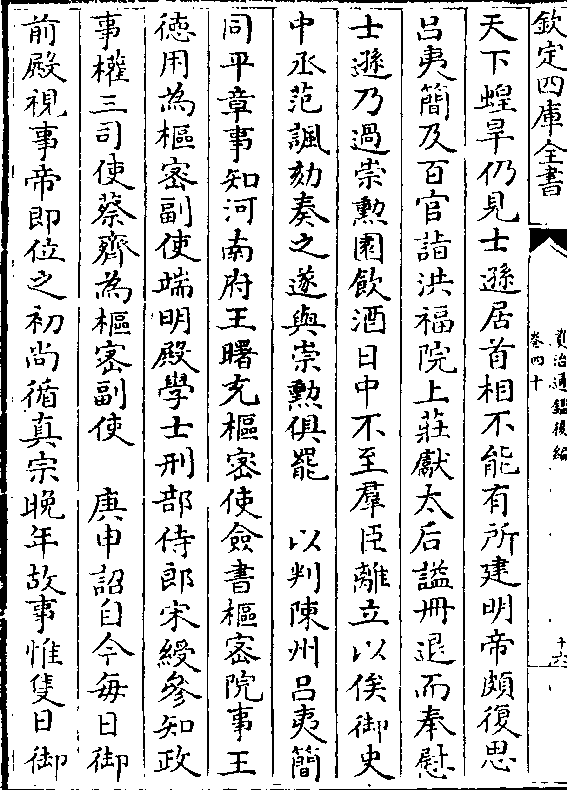 欽定四庫全書
資治通鑑後編
卷四十
十六
天下蝗旱仍見士遜居首相不能有所建明帝頗復思
吕夷簡及百官詣洪福院上莊獻太后謚冊退而奉慰
士遜乃過崇勲園飲酒日中不至羣臣離立以俟御史
中丞范諷劾奏之遂與崇勲俱罷　以判陳州吕夷簡
同平章事知河南府王曙充樞密使僉書樞密院事王
徳用為樞密副使端明殿學士刑部侍郎宋綬參知政
事權三司使蔡齊為樞密副使　庚申詔自今每日御
前殿視事帝即位之初尚循真宗晚年故事惟隻日御